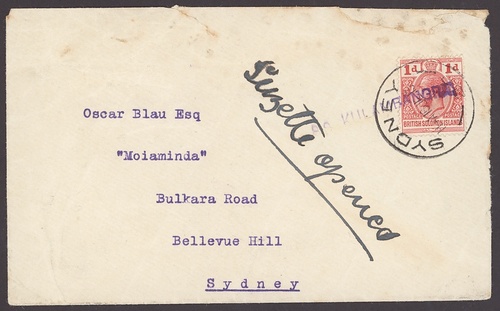 Oscar Blau Esq
"Moiaminda"
Bulkara Road
Bellevue Hill
Sydney
Suzette opened
1d 1d
BRITISH SOLOMON ISLANDS
SYDNEY